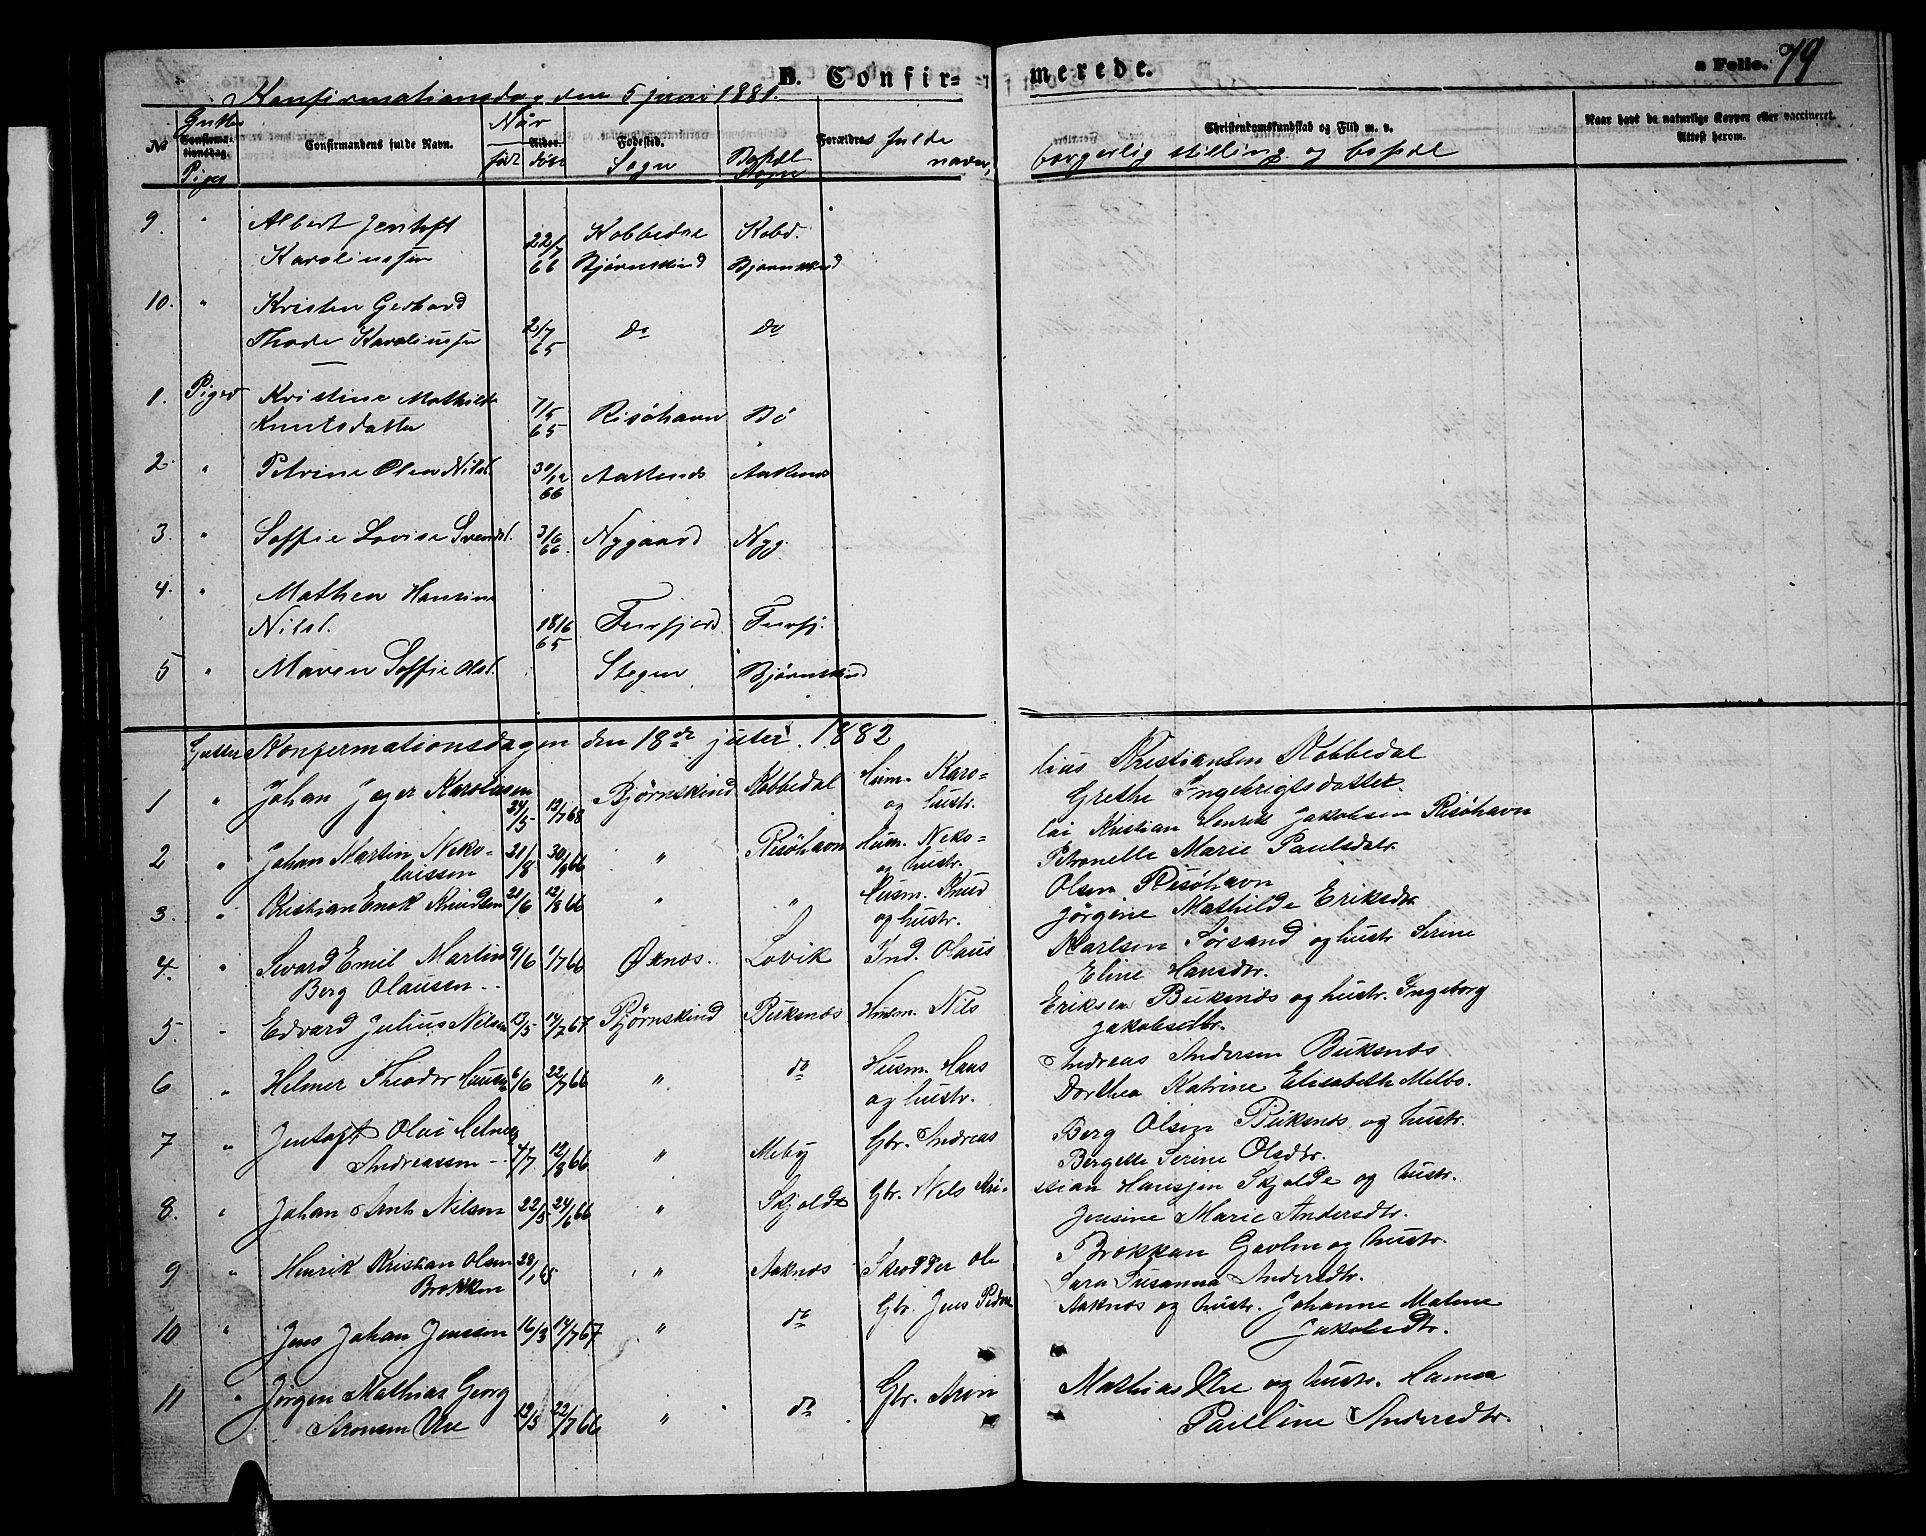 B. Confirmerede.
a Folio. 79
Konfirmationsdag den 5 juni 1881.
No Gutter Confirmationsdag. Piger
Confirmandens fulde Navn.
Når født
Alder. døbt
Fødested. Sogn
Bopæl Sogn
Forældres fulde navn, borgerlig stilling og bopæl
Christendomskundskab og Flid m. v.
Naar havt de naturlige Kopper eller vaccineret. Attest herom.
9. " Albert Jentoft
Karoliussen 22/7 66 Kobbedal Bjørnskind Kobd. Bjørnskind
10. " Kristen Gerhard
Thode Karoliussen 2/7 65 do do
1. Piger Kristine Mathilde
Knutsdatter 7/5 65 Risöhavn Bö
2. " Petrine Olea Nilsd. 30/12 66 Aaknes Aaknes
3. " Soffie Lovise Svendsd. 3/6 66. Nygaard Nyg.
4. " Mathea Hansine
Nilsd. 18/6 65 Forfjord Forfj.
5 " Maren Soffie Olsd. Stegen Bjørnskind
Gutter Konfermationsdagen den 18de juter. 1882
1 " Johan Jæger Karoliusen 24/5 13/7 68 Bjørnskind Kobbedal Husm. Karolius Kristiansen Kobbedal
og hustr. Grethe Ingebrigtsdatter.
2 " Johan Martin Nekolaissen 21/8 30/9 66 " Risøhavn Husm. Nekolai Kristian Henrik Jakobsen Risøhavn
og hustr. Petronelle Marie Paulsdatr.
3. " Kristian Enok Knudsen 21/6 12/8 66 " " Husm. Knud Olsen Risøhavn
og hustr. Jørgine Mathilde Eriksdr.
4. " Sevard Emil Martin 9/6 1/7 66 Øxnes. Lovik Ind. Olaus Karlsen Sørsand og hustr Serine
Berg Olausen -- Eline Hansdtr.
5. " Edvard Julius Nilsen 13/5 14/7 67 Bjørnskind Buksnæs Husm. Nils Eriksen Buksnæs og hustr. Ingeborg
Jakobsdtr.
6 " Helmer Theodor Hansen 6/6 22/7 66 " do Husm. Hans Andreas Andersen Buksnæs
og hustr. Dorthea Katrine Elisabeth Melbo.
7 " Jentoft Olai Helmer
Andreassen - 7/7 12/8 66 " Meby Gbr. Andreas Berg Olsen Buksnæs og hustr.
Bergette Serine Olsdtr.
8. " Johan Arnt Nilsen 22/5 24/6 66 " Skjolde Gbr. Nils Kristian Hansjen Skjolde og hustr.
Jensine Marie Andersdtr.
9 " Henrik Kristian Olsen
Brokken 28/1 65 " Aaknæs Skrædder Ole Brokkan Gavlen og hustr.
Sara Susanna Andersdtr.
10 " Jens Johan Jenssen 16/3 14/7 67 " do Gbr. Jens Peder Aaknæs og hustr. Johanne Malene
Jakobsdtr.
11 " Jørgen Mathias Georg
Aronsen Ure 12/5 22/7 66 " do Gbr. Aron Mathias Ure og hustr. Hanna
Pauline Andersdtr.